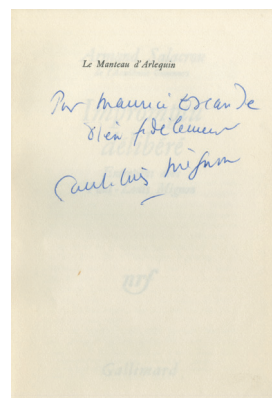 Le Manteau d'Arlequin
Pour Maurice Escande
Impromptu
bien fidèlement
délibéré
Paul-Louis Mignon
nrf
Gallimard